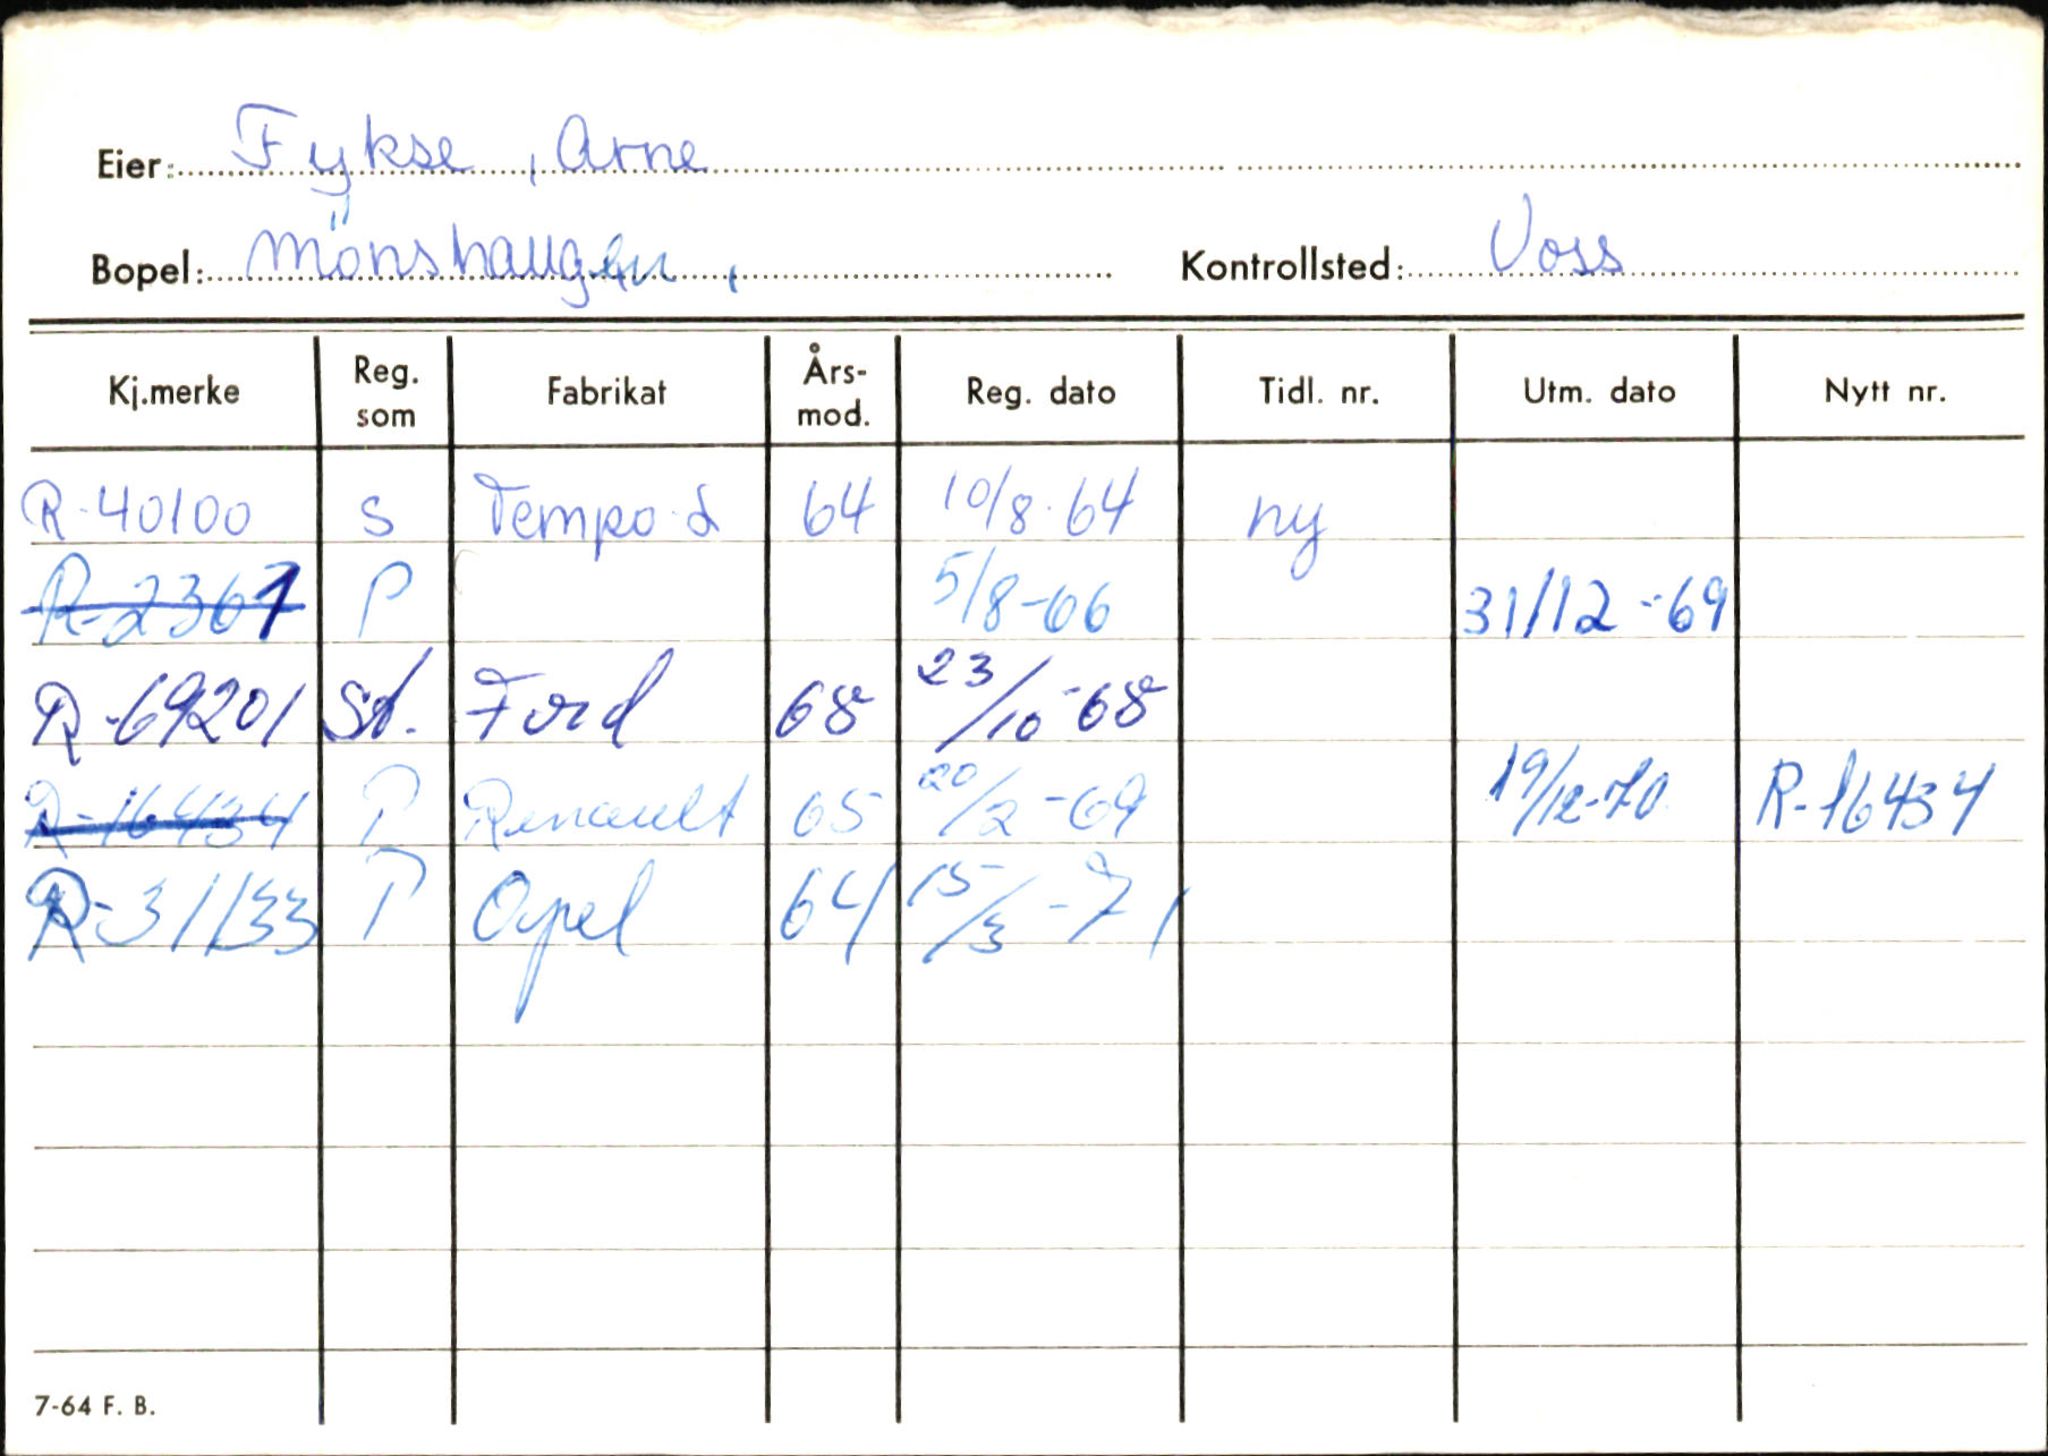 Eier: Fykse, Arne
Bopel: Mönshaugen, Kontrollsted: Voss
Kj.merke Reg. som Fabrikat Års-mod. Reg. dato Tidl. nr. Utm. dato Nytt nr.
R-40100 S Tempo d 64 10/8-64 ny
R-2367 P 5/8-66 31/12-69
R-69201 St. Ford 68 23/10-68
R-16434 P Renault 65 20/2-69 19/12-70 R-16434
R-31133 P Opel 64 15/3-71
7-64 F. B.